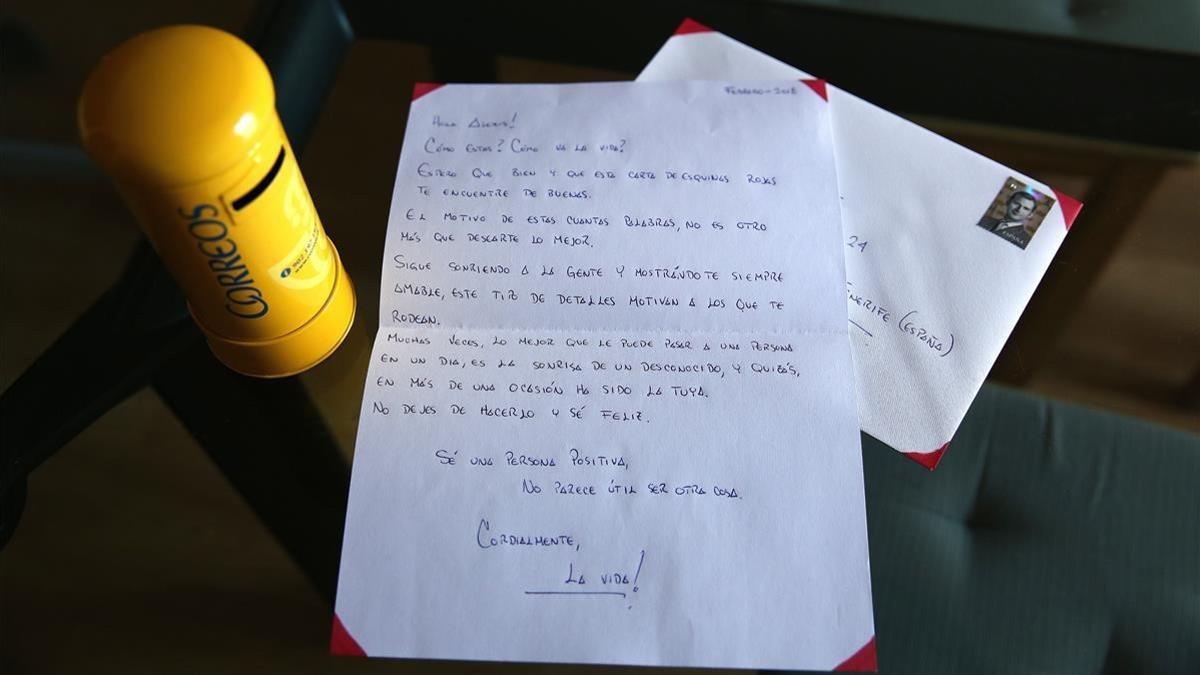 CORREOS
FEBRERO-2018
HOLA
CÓMO ESTAS? CÓMO VA LA VIDA?
ESPERO QUE BIEN Y QUE ESTA CARTA DE ESQUINAS ROJAS
TE ENCUENTRE DE BUENAS.
EL MOTIVO DE ESTAS CUANTAS PALABRAS, NO ES OTRO
MÁS QUE DESEARTE LO MEJOR.
SIGUE SONRIENDO A LA GENTE Y MOSTRÁNDOTE SIEMPRE
AMABLE, ESTE TIPO DE DETALLES MOTIVAN A LOS QUE TE
RODEAN.
MUCHAS VECES, LO MEJOR QUE LE PUEDE PASAR A UNA PERSONA
EN UN DIA, ES LA SONRISA DE UN DESCONOCIDO, Y QUIZÁS,
EN MÁS DE UNA OCASIÓN HA SIDO LA TUYA.
NO DEJES DE HACERLO Y SÉ FELIZ.
SÉ UNA PERSONA POSITIVA,
NO PARECE ÚTIL SER OTRA COSA.
CORDIALMENTE,
LA VIDA!
21
ENERIFE (ESPAÑA)
ESPAÑA